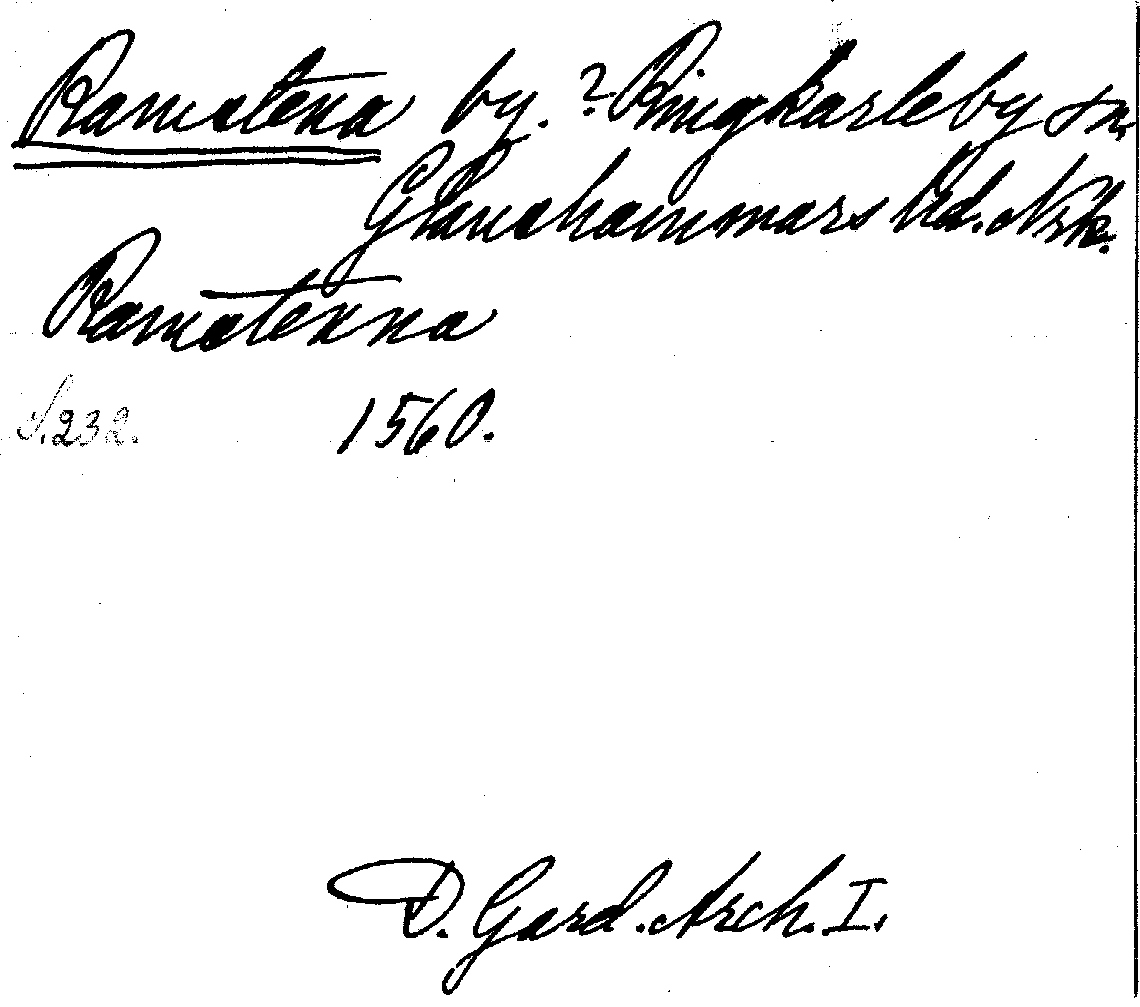 Ramstena by. ? Ringkarleby sn.
Glanshammars hd. Nrk.
Ramstenna
S. 232. 1560.
D. Gard. Arch. I.